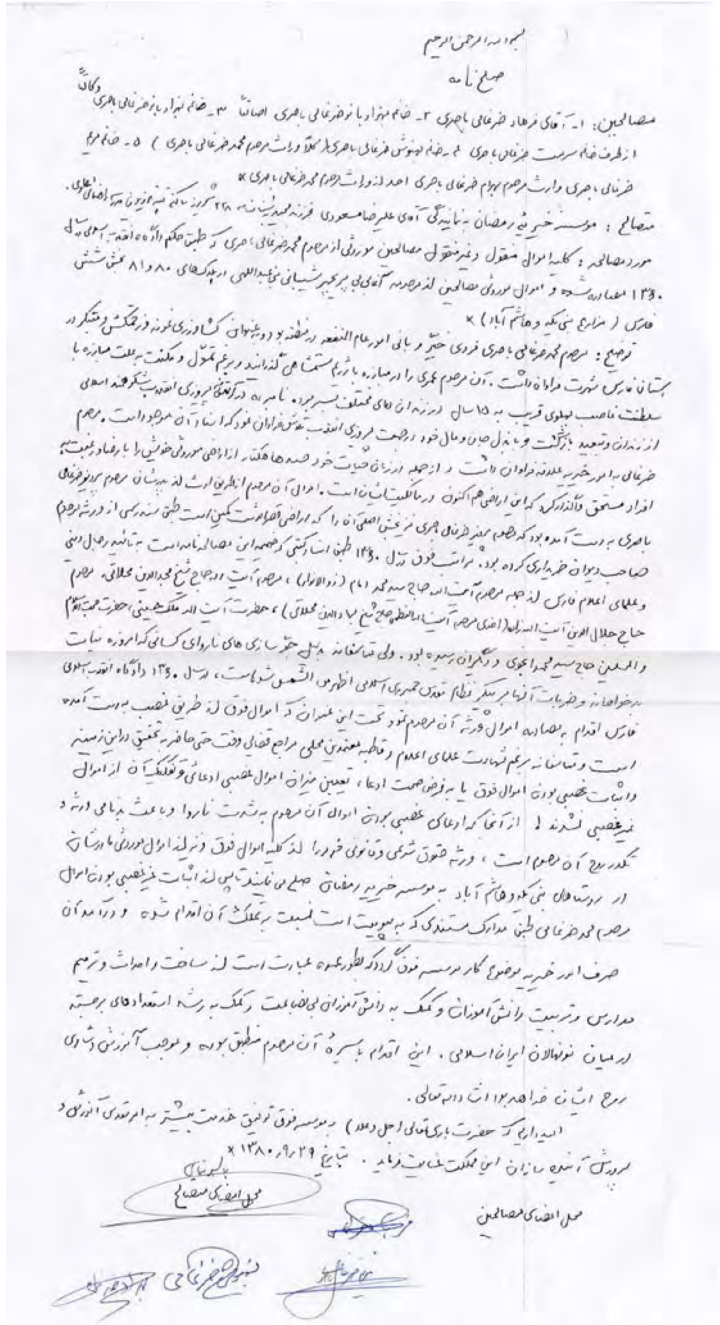 بسم الله الرحمن الرحیم
صلح نامه
مصالحین: ۱- آقای فرهاد ضرغامی باصری ۲- خانم مهرزاد بانو ضرغامی باصری اصالتاً ۳- خانم مهرزاد بانو ضرغامی باصری وکالتاً
از طرف خانم ضرغامی باصری ۴- خانم مهنوش ضرغامی باصری (کلاً وراث مرحوم محمد ضرغامی باصری) ۵- خانم مریم
ضرغامی باصری وارث مرحوم بهرام ضرغامی باصری احد از وراث مرحوم محمد ضرغامی باصری *
متصالح: موسسه خیریه رمضان به نمایندگی آقای علیرضا مسعودی فرزند
مورد مصالحه: کلیه اموال منقول و غیرمنقول مصالحین موروثی از مرحوم محمد ضرغامی باصری که طبق حکم دادگاه انقلاب اسلامی در سال
۱۳۶۰ مصادره شده و اموال موروثی مصالحین از مرحومه آغابی بی در پلاک های ۸۰ و ۸۱ بخش شش
فارس (مزارع بنی یکه و هاشم آباد) *
توضیح: مرحوم محمد ضرغامی باصری فردی خیّر و بانی امور عام المنفعه در منطقه بود و به عنوان کشاورزی نمونه و زحمتکش و مبتکر در
استان فارس شهرت فراوان داشت. آن مرحوم عمری را در مبارزه با رژیم ستمشاهی گذرانید و برغم تموّل و مکنت به علت مبارزه با
سلطنت غاصب پهلوی قریب به ۱۵ سال در زندان های مختلف بسر برده نامبرده در پیروزی انقلاب شکوهمند اسلامی
از زندان و تبعید بازگشت و با بذل جان و مال خود در جهت پیروزی انقلاب تلاش فراوان نمود که اسناد آن موجود است. مرحوم
ضرغامی به امور خیریه علاقه فراوان داشت و از جمله در زمان حیات خود صدها هکتار از اراضی موروثی خویش را با رضا و رغبت به
افراد مستحق واگذار کرد که این اراضی هم اکنون در مالکیت ایشان است. اموال آن مرحوم از طریق ارث از پدرشان مرحوم ضرغامی
باصری به دست آمده بود که مرحوم ضرغامی باصری نیز بخش اصلی آن را که اراضی است طبق سند رسمی از ورثه مرحوم
صاحب دیوان خریداری کرده بود. مراتب فوق در سال ۱۳۶۰ طبق اسناد کتبی که ضمیمه این مصالحه نامه است به تائید رجال دینی
و علمای اعلام فارس از جمله مرحوم آیت الله حاج سید محمد امام، مرحوم آیت الله حاج شیخ مجدالدین محلاتی، مرحوم
حاج جلال الدین آیت الله زاده، حضرت آیت الله ملک حسینی، حضرت
والمسلمین حاج سید محمد و دیگران رسیده بود. ولی متاسفانه بدلیل جوّ سازی های ناروای کسانی که امروزه نیات
بدخواهانه و ضربات آنها بر پیکر نظام مقدس جمهوری اسلامی اظهر من الشمس شده است، در سال ۱۳۶۰ دادگاه انقلاب اسلامی
فارس اقدام به مصادره اموال ورثه آن مرحوم نمود تحت این عنوان که اموال فوق از طریق غصب به دست آمده
است و متاسفانه برغم شهادت علمای اعلام و قاطبه معتمدین محلی مراجع قضائی وقت حتی حاضر به تحقیق در این زمینه
و اثبات غصبی بودن اموال فوق یا به فرض صحت ادعا، تعیین میزان اموال غصبی ادعائی و تفکیک آن از اموال
غیر غصبی نشدند! از آنجا که ادعای غصبی بودن اموال آن مرحوم به شدت ناروا و باعث بدنامی ورثه و
تکدر روح آن مرحوم است، ورثه حقوق شرعی و قانونی خود را از کلیه اموال فوق و نیز از اموال موروثی مادرشان
در روستاهای بنی یکه و هاشم آباد به موسسه خیریه رمضان صلح می نمایند تا پس از اثبات غیر غصبی بودن اموال
مرحوم محمد ضرغامی طبق مدارک مستندی که به پیوست است نسبت به تملک آن اقدام شود و درآمد آن
صرف امور خیریه موضوع کار موسسه فوق گردد که بطور عمده عبارت است از ساخت و احداث و ترمیم
مدارس و تربیت دانش آموزان و کمک به دانش آموزان بی بضاعت و کمک به رشد استعدادهای برجسته
در میان نونهالان ایران اسلامی. این اقدام با سیرهٔ آن مرحوم منطبق بوده و موجب آمرزش و شادی
روح ایشان خواهد بود انشاءالله تعالی.
امیدواریم که حضرت باری تعالی به موسسه فوق توفیق خدمت بیشتر به امر مقدس آموزش و
پرورش آینده سازان این مملکت عنایت فرماید. بتاریخ ۱۳۸۰/۹/۲۹ *
محل امضای متصالح
محل امضای مصالحین